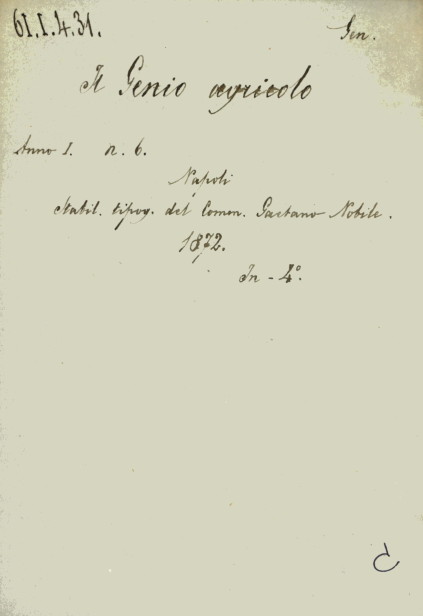 61.I.4.31.
Gen.
Il Genio agricolo
Anno I. n. 6.
Napoli
Stabil. tipog. del Comm. Gaetano Nobile.
1872.
In-4°.